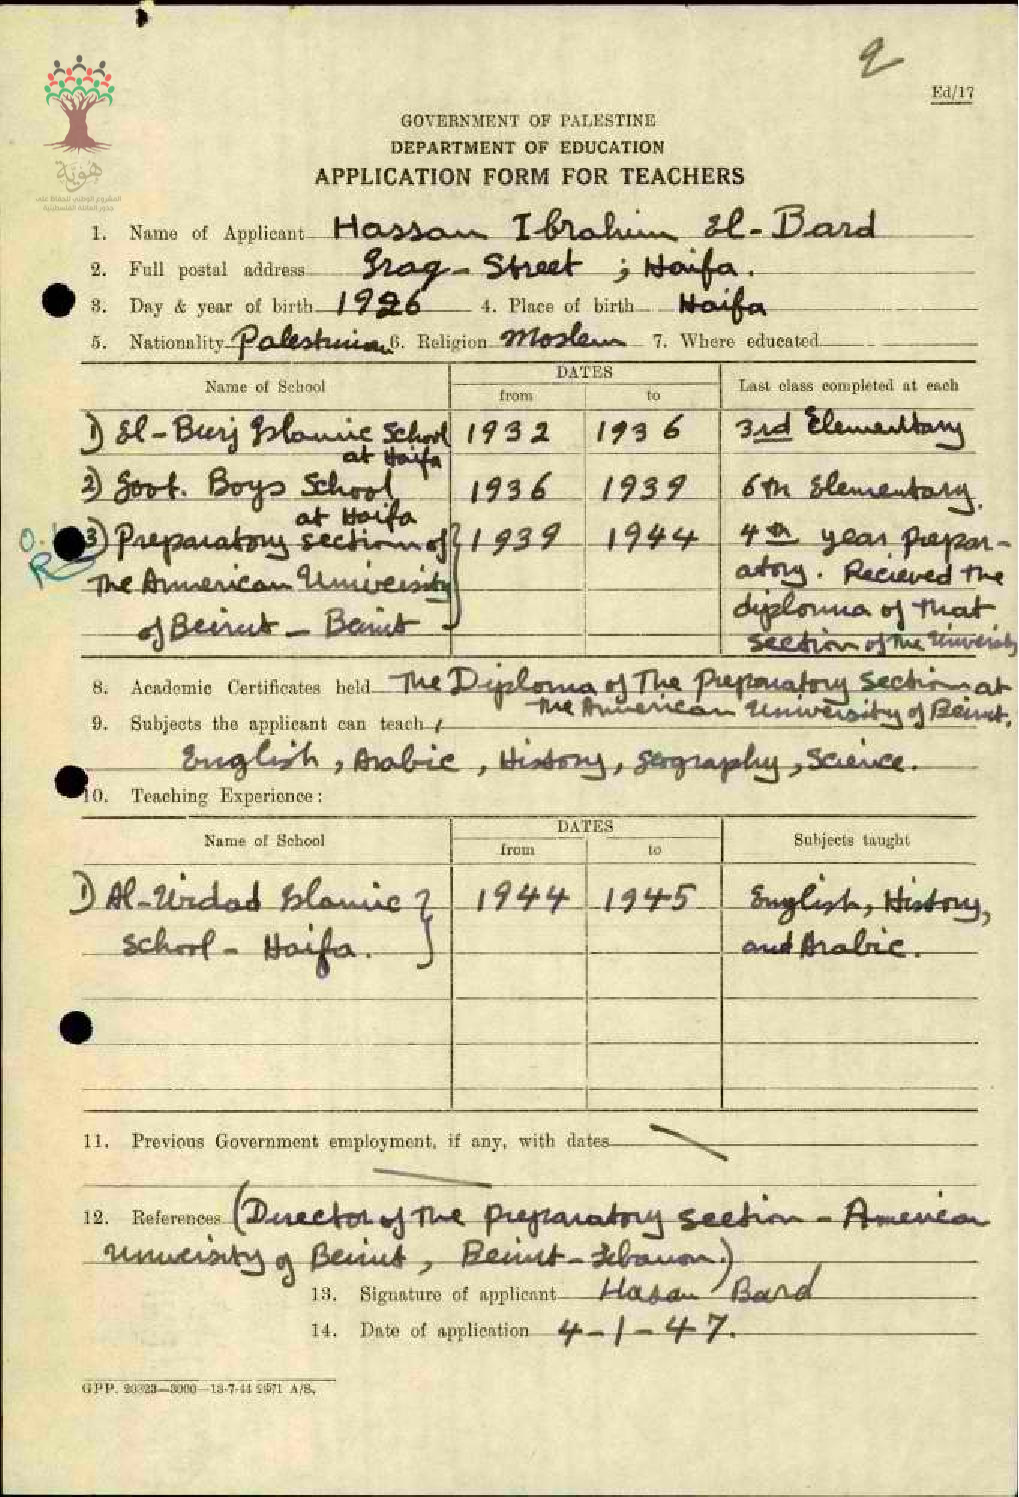 2
Ed/17
هوية
المشروع الوطني للحفاظ على
جذور العائلة الفلسطينية
GOVERNMENT OF PALESTINE
DEPARTMENT OF EDUCATION
APPLICATION FORM FOR TEACHERS
1. Name of Applicant Hassan Ibrahim El-Bard
2. Full postal address Iraq-Street ; Haifa.
3. Day & year of birth 1926 4. Place of birth Haifa
5. Nationality Palestinian 6. Religion Moslem 7. Where educated
Name of School DATES Last class completed at each
from to
1) El-Burj Islamic School 1932 1936 3rd Elementtary
at Haifa
2) Govt. Boys School 1936 1939 6th Elementary.
at Haifa
3) Preparatory section of 1939 1944 4th year prepar-
The American University atory. Recieved the
of Beirut - Beirut diploma of that
section of the University
8. Academic Certificates held The Diploma of The Preparatory Section at
the American University of Beirut.
9. Subjects the applicant can teach
English, Arabic, History, Geography, Science.
10. Teaching Experience:
Name of School DATES Subjects taught
from to
1) Islamic 1944 1945 English, History,
School - Haifa. and Arabic.
11. Previous Government employment, if any, with dates
12. References (Director of The Preparatory Section - American
University of Beirut, Beirut-Lebanon.)
13. Signature of applicant Hasan Bard
14. Date of application 4-1-47.
GPP. 20323-3000-13-7-44 A/S.